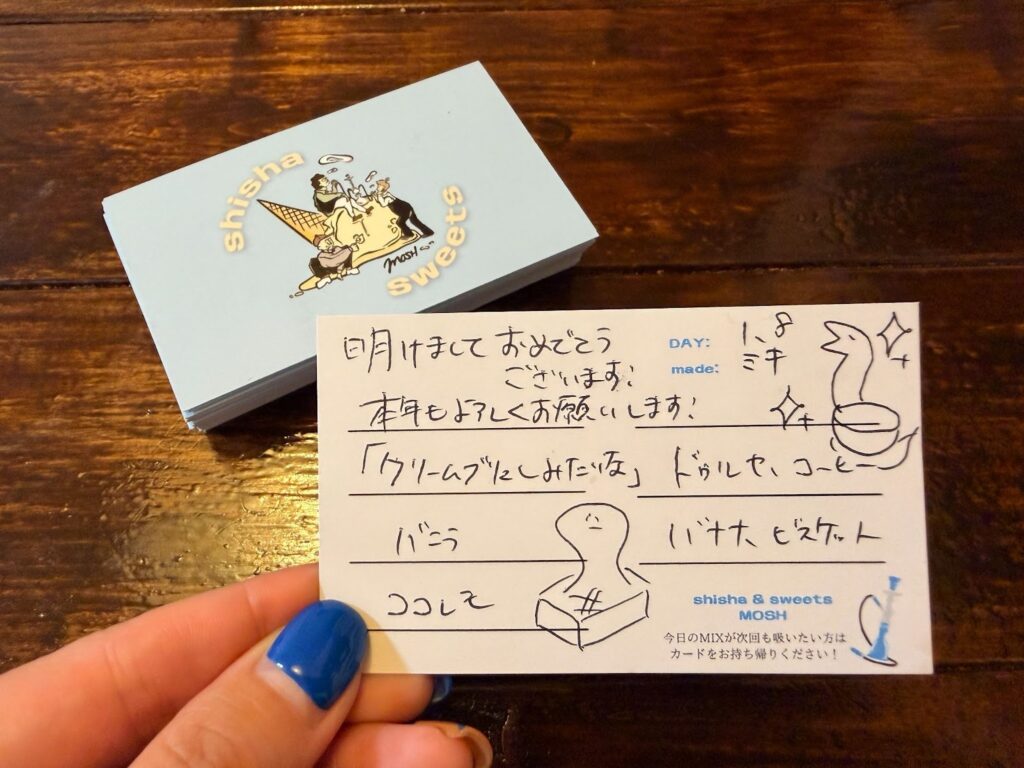 shisha
sweets
MOSH
明けまして おめでとう
ございます!
本年もよろしくお願いします!
DAY: 1、8
made: ミキ
「クリームブリュレみたいな」
ドゥルセ、コーヒー
バニラ
バナナ、ビスケット
shisha & sweets
MOSH
今日のMIXが次回も吸いたい方は
カードをお持ち帰りください！